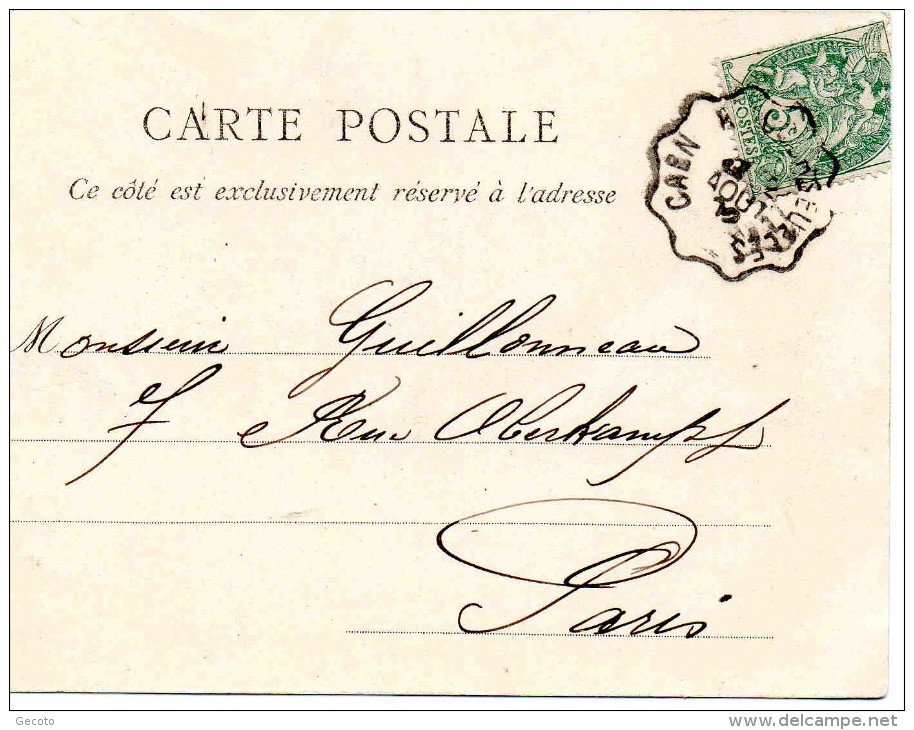 CARTE POSTALE
Ce côté est exclusivement réservé à l'adresse
POSTES
CAEN
AOUT
Monsieur Guillonneau
7 Rue Oberkampf
Paris
Gecoto
www.delcampe.net